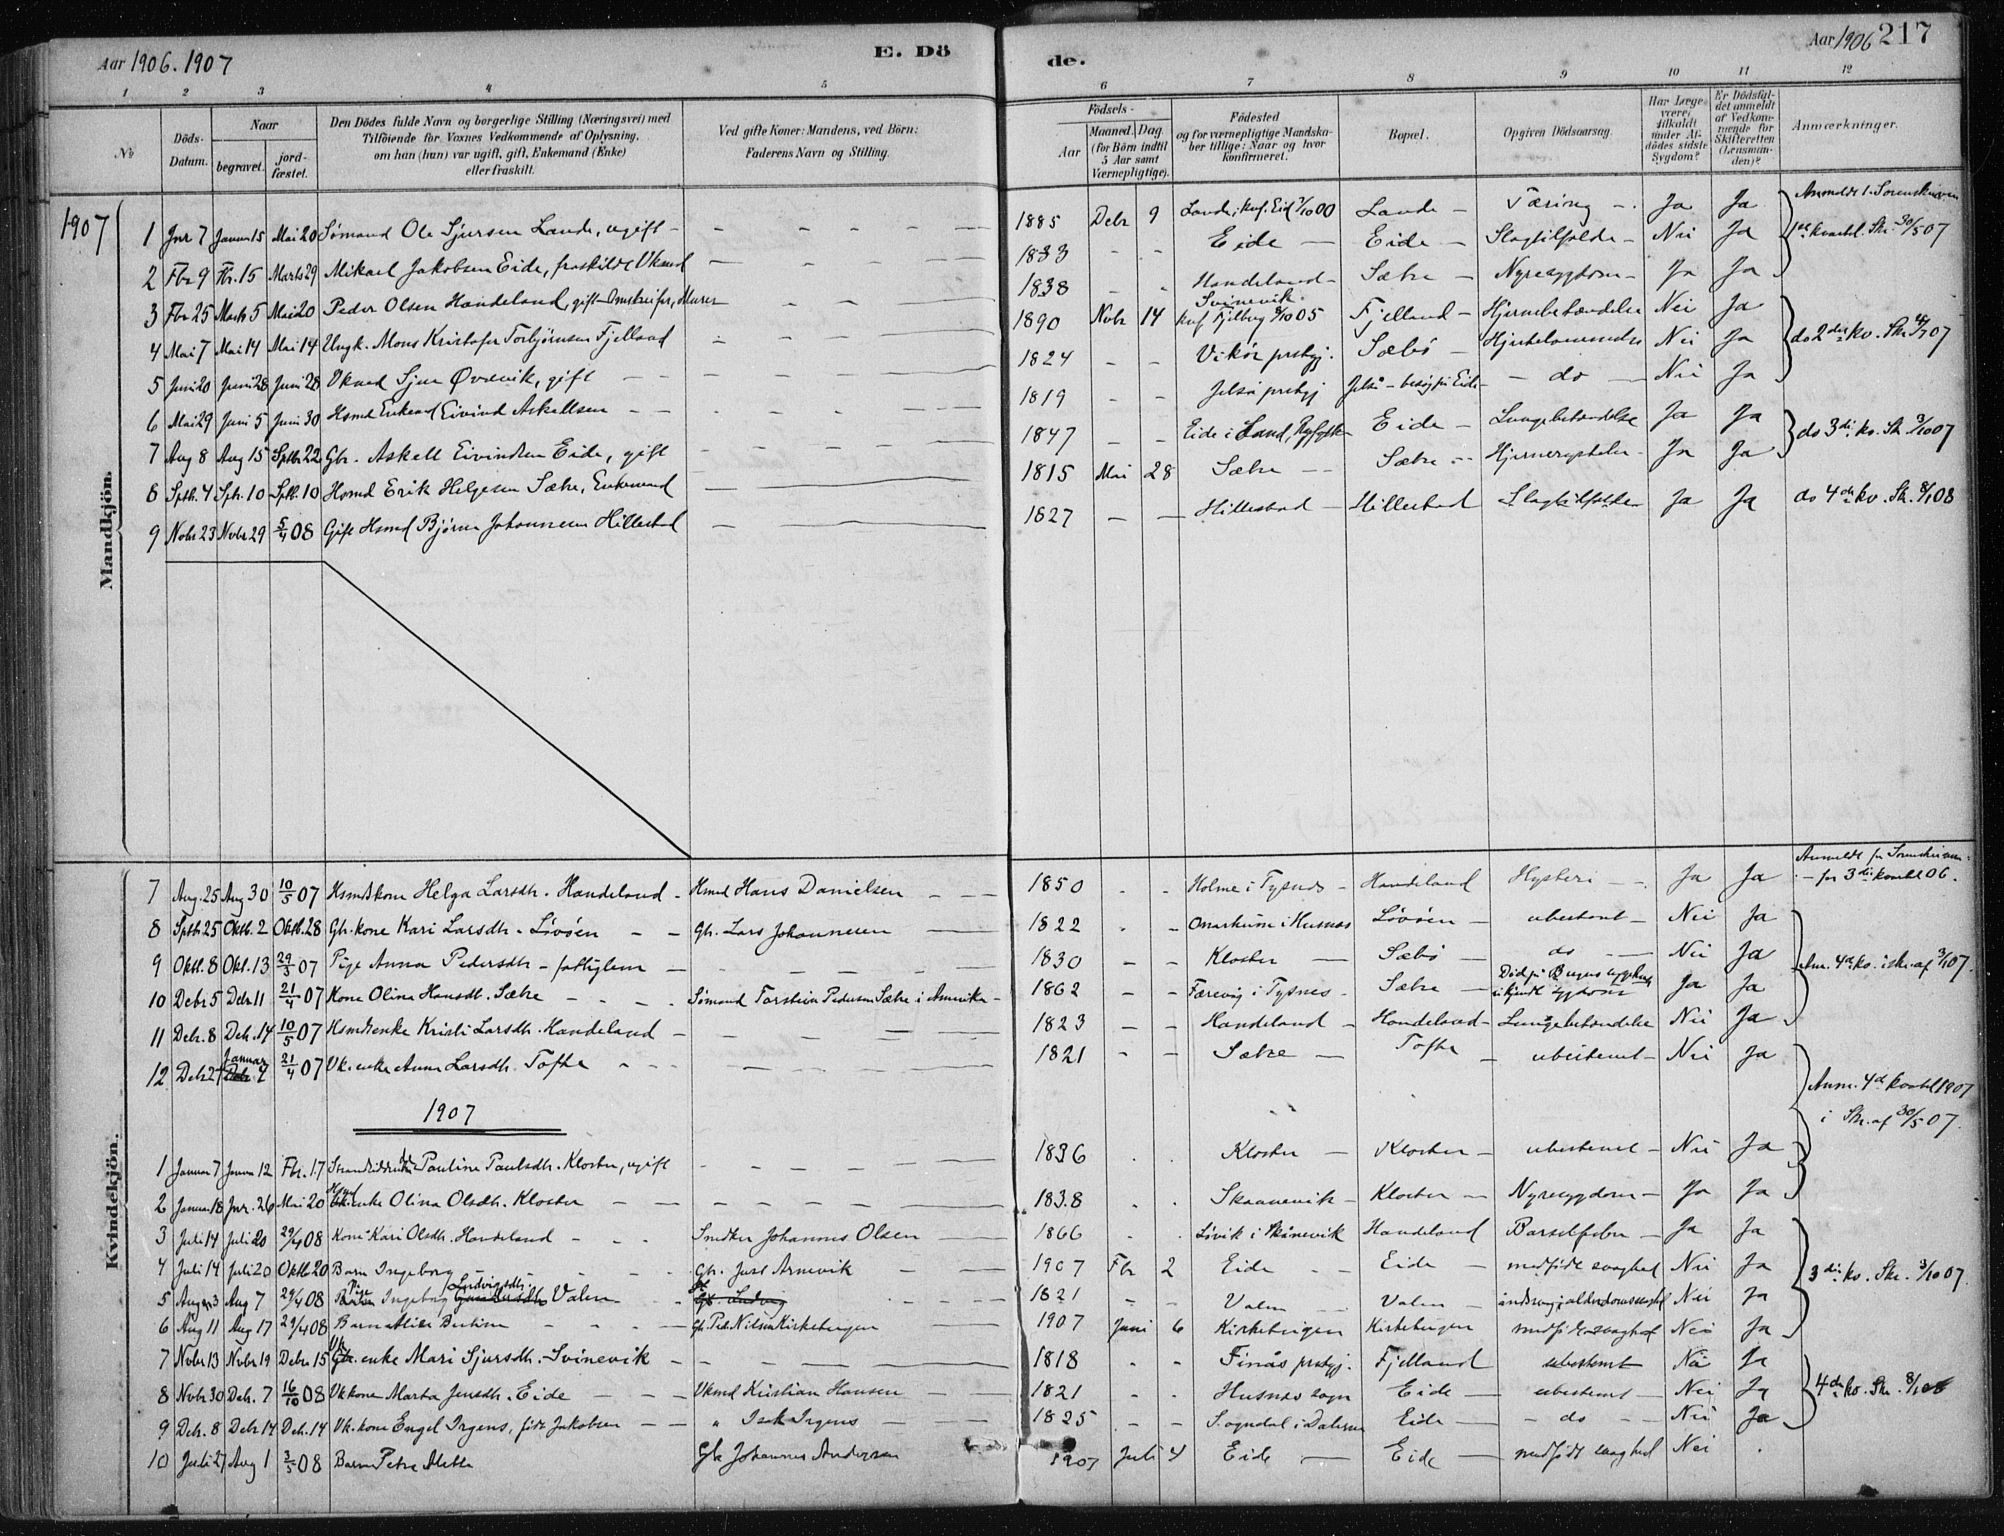 Aar 1906. 1907
E. Dö
de.
Aar 1906 217
1 2 3 4 5 6 7 8 9 10 11 12
No
Döds-Datum.
Naar begravet. jordfæstet.
Den Dödes fulde Navn og borgerlige Stilling (Næringsvei) med Tilföiende for Voxnes Vedkommende af Oplysning, om han (hun) var ugift, gift, Enkemand (Enke) eller fraskilt.
Ved gifte Koner: Mandens, ved Börn: Faderens Navn og Stilling.
Födsels- Aar Maaned. Dag. (for Börn indtil 5 Aar samt Værnepligtige).
Födested og for værnepligtige Mandskaber tillige: Naar og hvor konfirmeret.
Bopæl.
Opgiven Dödsaarsag.
Har Læge været tilkaldt under Afdödes sidste Sygdom?
Er Dödsfaldet anmeldt af Vedkommende for Skifteretten (Lensmanden)?
Anmærkninger.
1907
Mandkjön.
1 Jnr 7 Januar 15 Mai 20 Sømand Ole Sjursen Lande, ugift - - - - - 1885 Debr 9 Lande, kof. Eid 7/10 00 Lande - Tæring - Ja Ja Anmeldt t. Sorenskriveren
2 Fbr 9 Fbr. 15 Marts 29 Mikael Jakobsen Eide, fraskildt Vkmd - - - 1833 - - Eide - Eide - Slagtilfælde - Nei Ja 1ste kvartal. Skr. 30/5 07
3 Fbr 25 Marts 5 Mai 20 Peder Olsen Handeland, gift Omstreifer, Murer - - - 1838 - - Handeland - Sætre - Nyresygdom - Ja Ja
4 Mai 7 Mai 14 Mai 14 Ungk. Mons Kristofer Torbjørnsen Fjelland - - - 1890 Novbr 14 Svinevik. kof Fjelberg 8/10 05 Fjelland - Hjernebetændelse Nei Ja
5 Juni 20 Juni 28 Juni 28 Vkmd Sjur Øvrevik, gift - - - 1824 - - Vikør prstgj. Sæbö - Hjertelammelse Nei Ja do 2det kv. Skr. 07
6 Mai 29 Juni 5 Juni 30 Hsmd Enkemd Eivind Askellsen - - 1819 - - Jelsø prstgj Jelsø - besøg på Eide - - do - Nei Ja
7 Aug 8 Aug 15 Sptbr 22 Gbr. Askell Eivindsen Eide, gift - - 1847 - - Eide i Sand, Ryfylke Eide - Lungebetændelse Ja Ja do 3die kv. Sk. 3/10 07
8 Sptb. 4 Spb. 10 Sptb. 10 Hsmd Erik Helgesen Sætre, Enkemand - 1815 Mai 28 Sætre - - Sætre - Ja Ja
9 Nobr 23 Nvbr 29 5/4 08 Gift Hsmd Bjørn Johannesen Hillestad - 1827 - - Hillestad - Hillestad Slagtilfælde Ja Ja do 4de kv. Sk. 8/1 08
Kvindekjön.
7 Aug. 25 Aug 30 10/5 07 Hsmdskone Helga Larsdtr. Handeland - Hsmd Hans Danielsen - - 1850 - - Holme i Tysnes - Handeland Hysteri - - Ja Ja Anmeldt for Sorenskriveren - for 3die kvartal 06.
8 Sptbr 25 Oktb. 2 Oktb. 28 Gbr. kone Kari Larsdtr. Lövöen - - Gbr. Lars Johannesen - - 1822 - - i Husnes Lövöen - ubestemt - Nei Ja
9 Oktb. 8 Okt. 13 29/3 07 Pige Anna Pedersdtr - fattiglem - - - 1830 - - Kloster - Sæbö - do - - Nei Ja Anm. 4de kv. i skr. af 3/1 07.
10 Debr 5 Debr 11 21/4 07 Kone Olina Hansdtr. Sætre - - - Sømand Torstein Pedersen Sætre i Amerika - 1862 - - Færevåg i Tysnes - Sætre - Död på Bergens sygehus ukjendt sygdom Ja Ja
11 Debr. 8 Debr. 14 10/5 07 Hsmdsenke Kristi Larsdtr. Handeland - - - 1823 - - Handeland - Handeland - Lungebetændelse Nei Ja
12 Debr 27 Januar 4 21/4 07 Vk. enke Anna Larsdtr. Tofte - - - 1821 - - Sætre - Tofte - ubestemt - Nei Ja
1907
Anm. 4de kvartal 1907
i Skr. af 30/5 07.
1 Januar 7 Januar 12 Fbr. 17 Pauline Paulsdtr. Kloster, ugift - - - 1836 - - Kloster - Kloster - ubestemt - Nei Ja
2 Januar 18 Jnr. 26 Mai 20 Hsmd enke Olina Olsdtr. Kloster - - - 1838 - - Skaanevik - Kloster - Nyresygdom - Ja Ja
3 Juli 14 Juli 20 29/4 08 Kone Kari Olsdtr. Handeland - - Johannes Olsen - - 1866 Løvik i Skånevik Handeland Barselfeber - Ja Ja
4 Juli 14 Juli 20 Oktb 20 Barn Ingeborg - - Gbr. Just Arnevik - - 1907 Fbr 2 Eide - - Eide - medfödt svaghed Nei Ja 3die kv. Skr. 3/10 07.
5 August 3 Aug 7 29/4 08 Pige Ingeborg Ludvigsdtr. Valen - - Gb. Ludvig - - 1821 - - Valen - Valen - åndssvag, alderdomssvaghed Nei Ja
6 Aug 11 Aug 17 29/4 08 Barn Bertine - - Gbr. Peder Nilsen Kirkebergen - - 1907 Juni 6 Kirkebergen Kirkebergen medfödt svaghed Nei Ja
7 Nvbr 13 Nvbr 19 Debr 15 Vk. enke Mari Sjursdtr. Svinevik - - - 1818 - - Finås prstgj. Fjelland ubestemt Nei Ja
8 Nvbr 30 Debr. 7 16/10 08 Vk kone Marta Jensdtr. Eide - - Vkmd Kristian Hansen - - 1821 - - Husnes sogn Eide - ubestemt - Nei Ja 4de kv. Skr. 8/1 08
9 Debr. 8 Debr 14 Debr. 14 Vk. kone Engel Irgens, född Jakobsen - - " Isak Irgens - - 1825 - - Sogndal i Dalerne Eide - - do - - Nei Ja
10 Juli 27 Aug 1 3/5 08 Barn Petra Mette Gb Johannes Andersen 1907 Juli 4 Eide - Eide - medfödt svaghed Nei